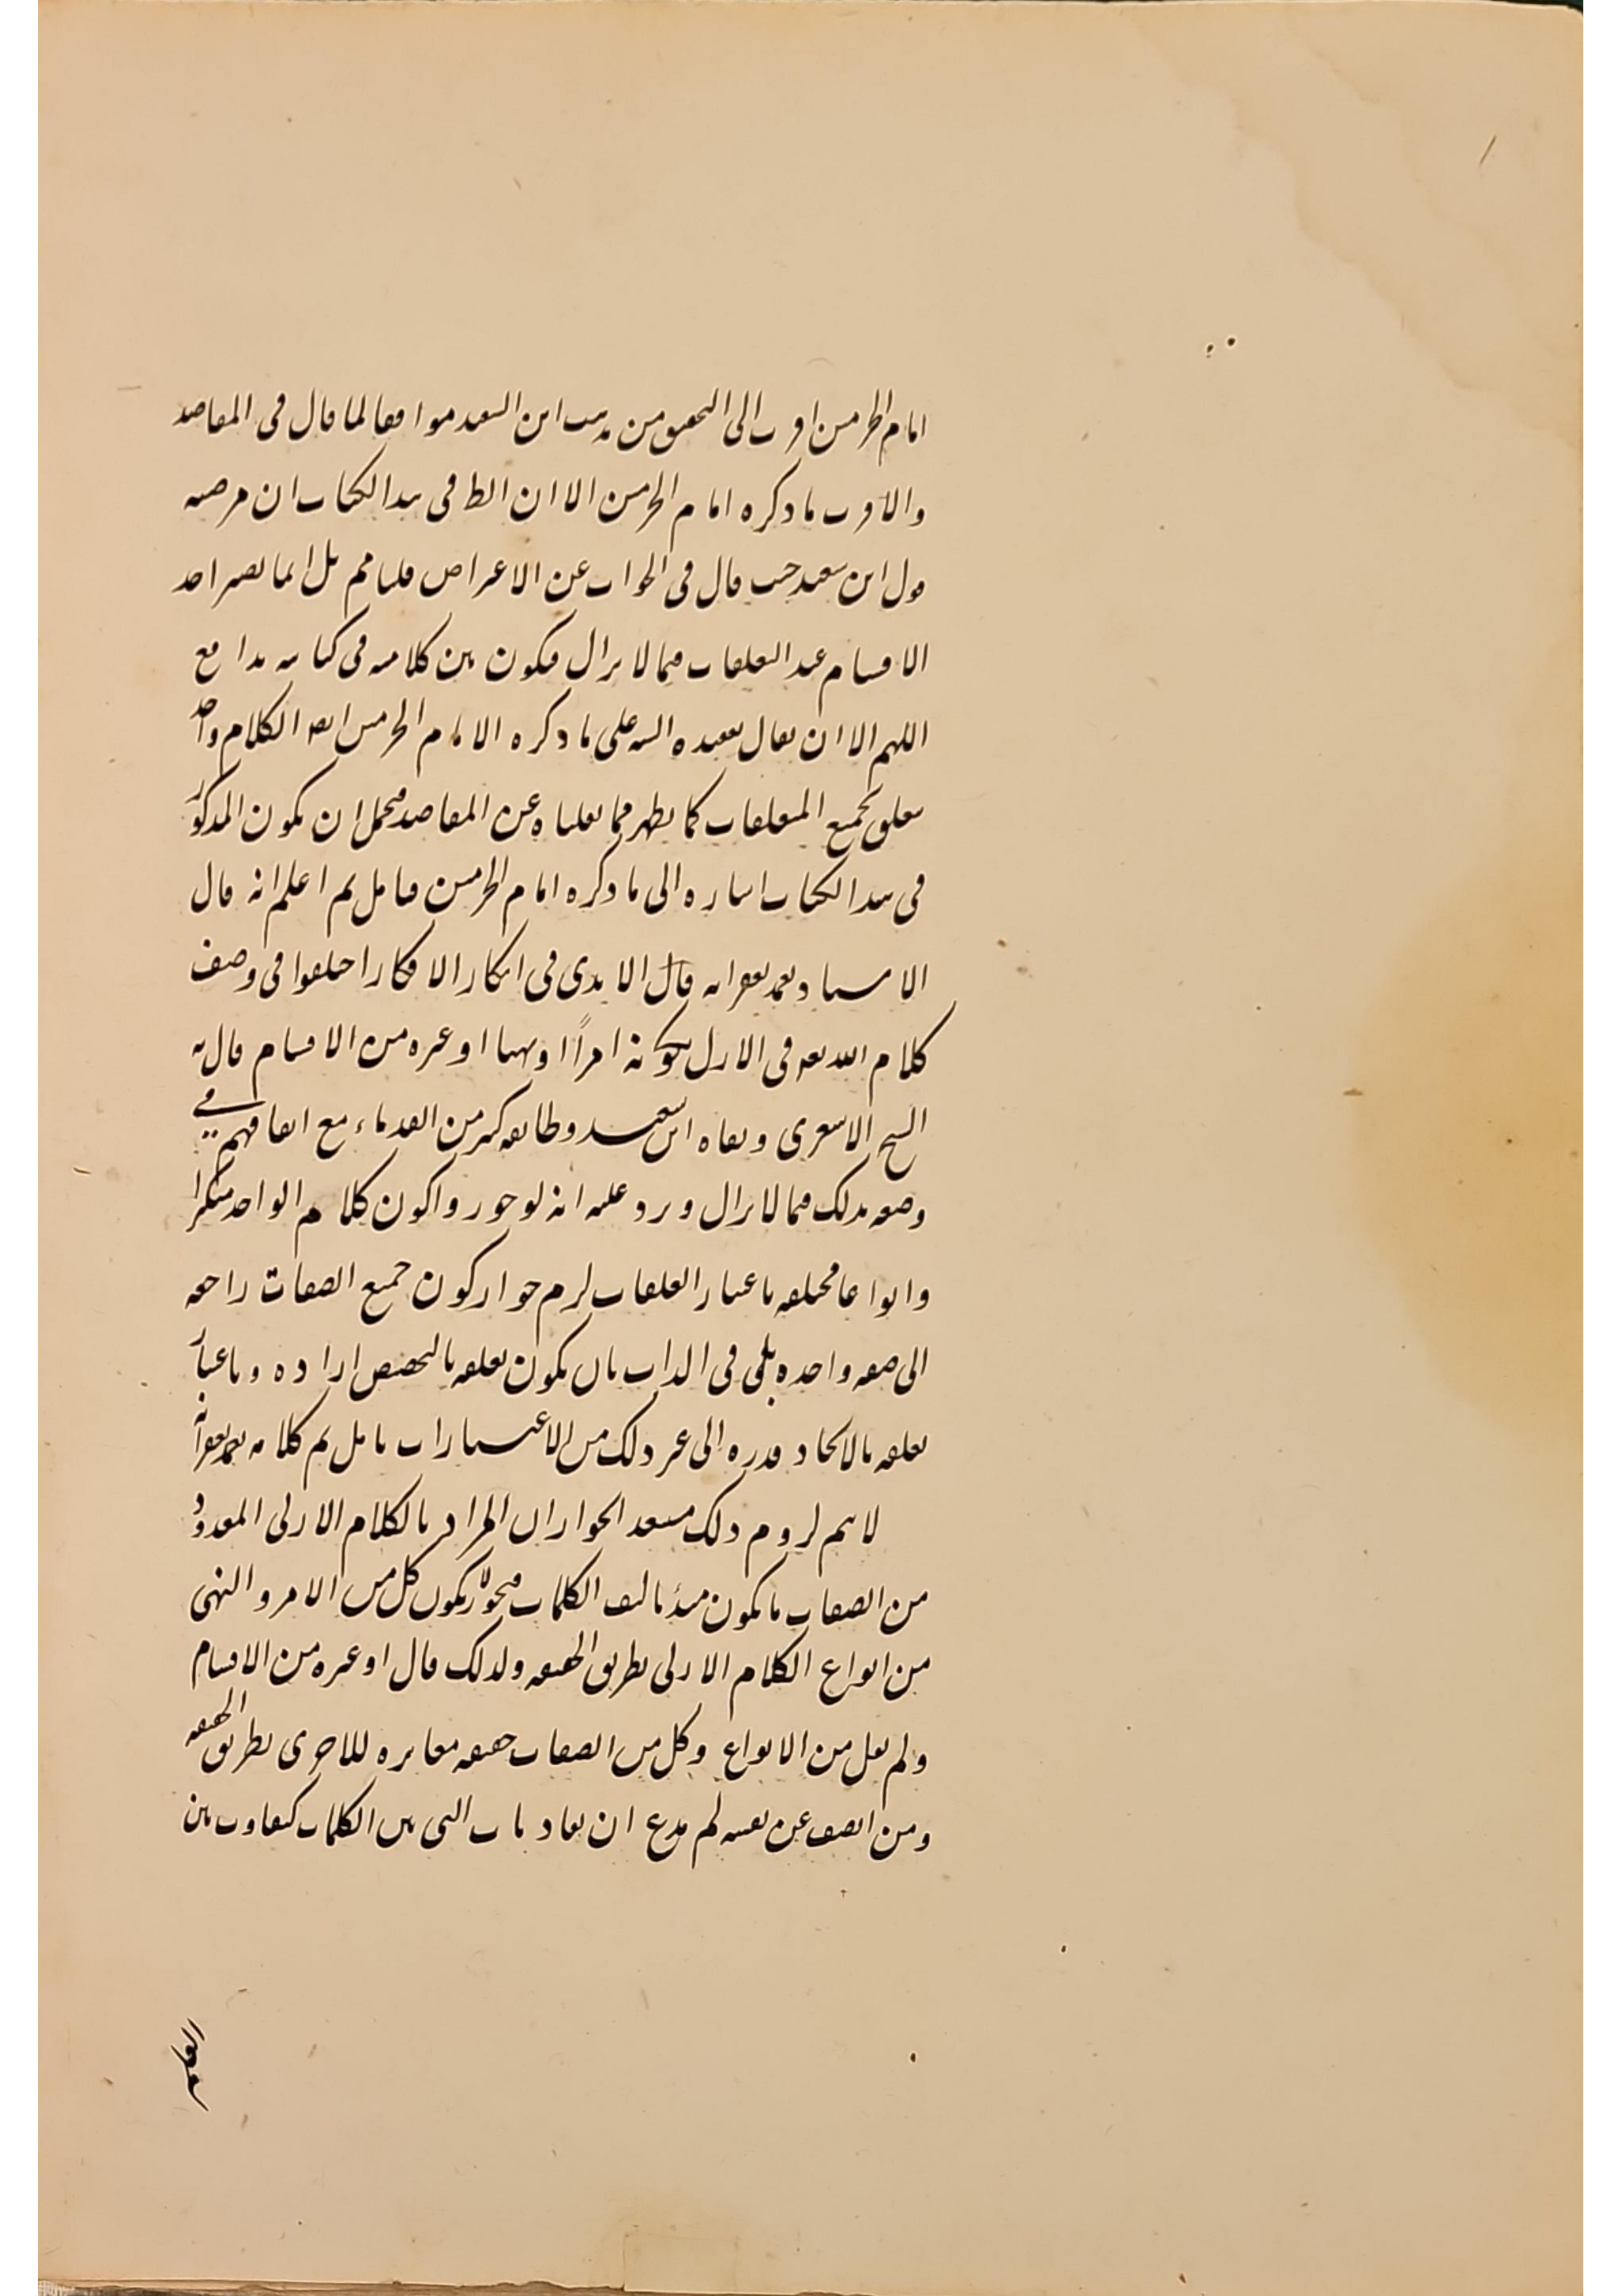 امام الحرمين اقرب الى التحقيق من مذهب ابن السعد موافقا لما قال فى المقاصد
والاقرب ما ذكره امام الحرمين الا ان الظ فى هذا الكتاب ان مرضيه
قول ابن سعيد حيث قال فى الجواب عن الاعتراض قلنا مم بل انما يصير احد
الاقسام عند التعلقات فيما لا يزال فيكون بين كلاميه فى كتابيه تدافع
اللهم الا ان يقال على ما ذكره الامام الحرمين ايض الكلام واحد
متعلق بجميع المتعلقات كما يظهر مما نقلناه عن المقاصد فيحتمل ان يكون المذكور
فى هذا الكتاب اشاره الى ما ذكره امام الحرمين فتامل ثم اعلم انه قال
الاستاد قال الامدى فى ابكار الافكار اختلفوا فى وصف
كلام الله تعه فى الازل بكونه امرًا او نهيا او غيره من الاقسام قال به
الشيخ الاشعرى ونفاه ابن سعيد وطائفه كثير من القدماء مع اتفاقهم فى
وصفه بذلك فيما لا يزال ويرد عليه انه لو جوزوا كون كلام الواحد متكثرا
وانواعا مختلفه باعتبار التعلقات لزم جواز كون جميع الصفات راجعه
الى صفه واحده بل فى الذات بان يكون تعلقه بالتخصص اراده وباعتبار
تعلقه بالايجاد قدره الى غير ذلك من الاعتبارات تامل ثم كلامه
لا نم لزوم ذلك الجواز ان المراد بالكلام الازلى المعدود
من الصفات ما يكون مبدء تاليف الكلمات فيجوز كون كل من الامر والنهى
من انواع الكلام الازلى بطريق الحقيقه ولذلك قال او غيره من الاقسام
ولم يقل من الانواع وكل من الصفات حقيقه مغايره للاخرى بطريق الحقيقه
ومن انصف عن نفسه لم يدع ان تفاوت التى بين الكلمات كتفاوت بين